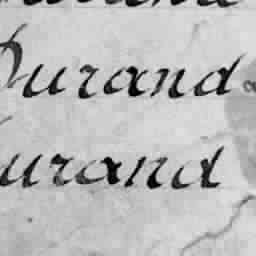 Durand
urand